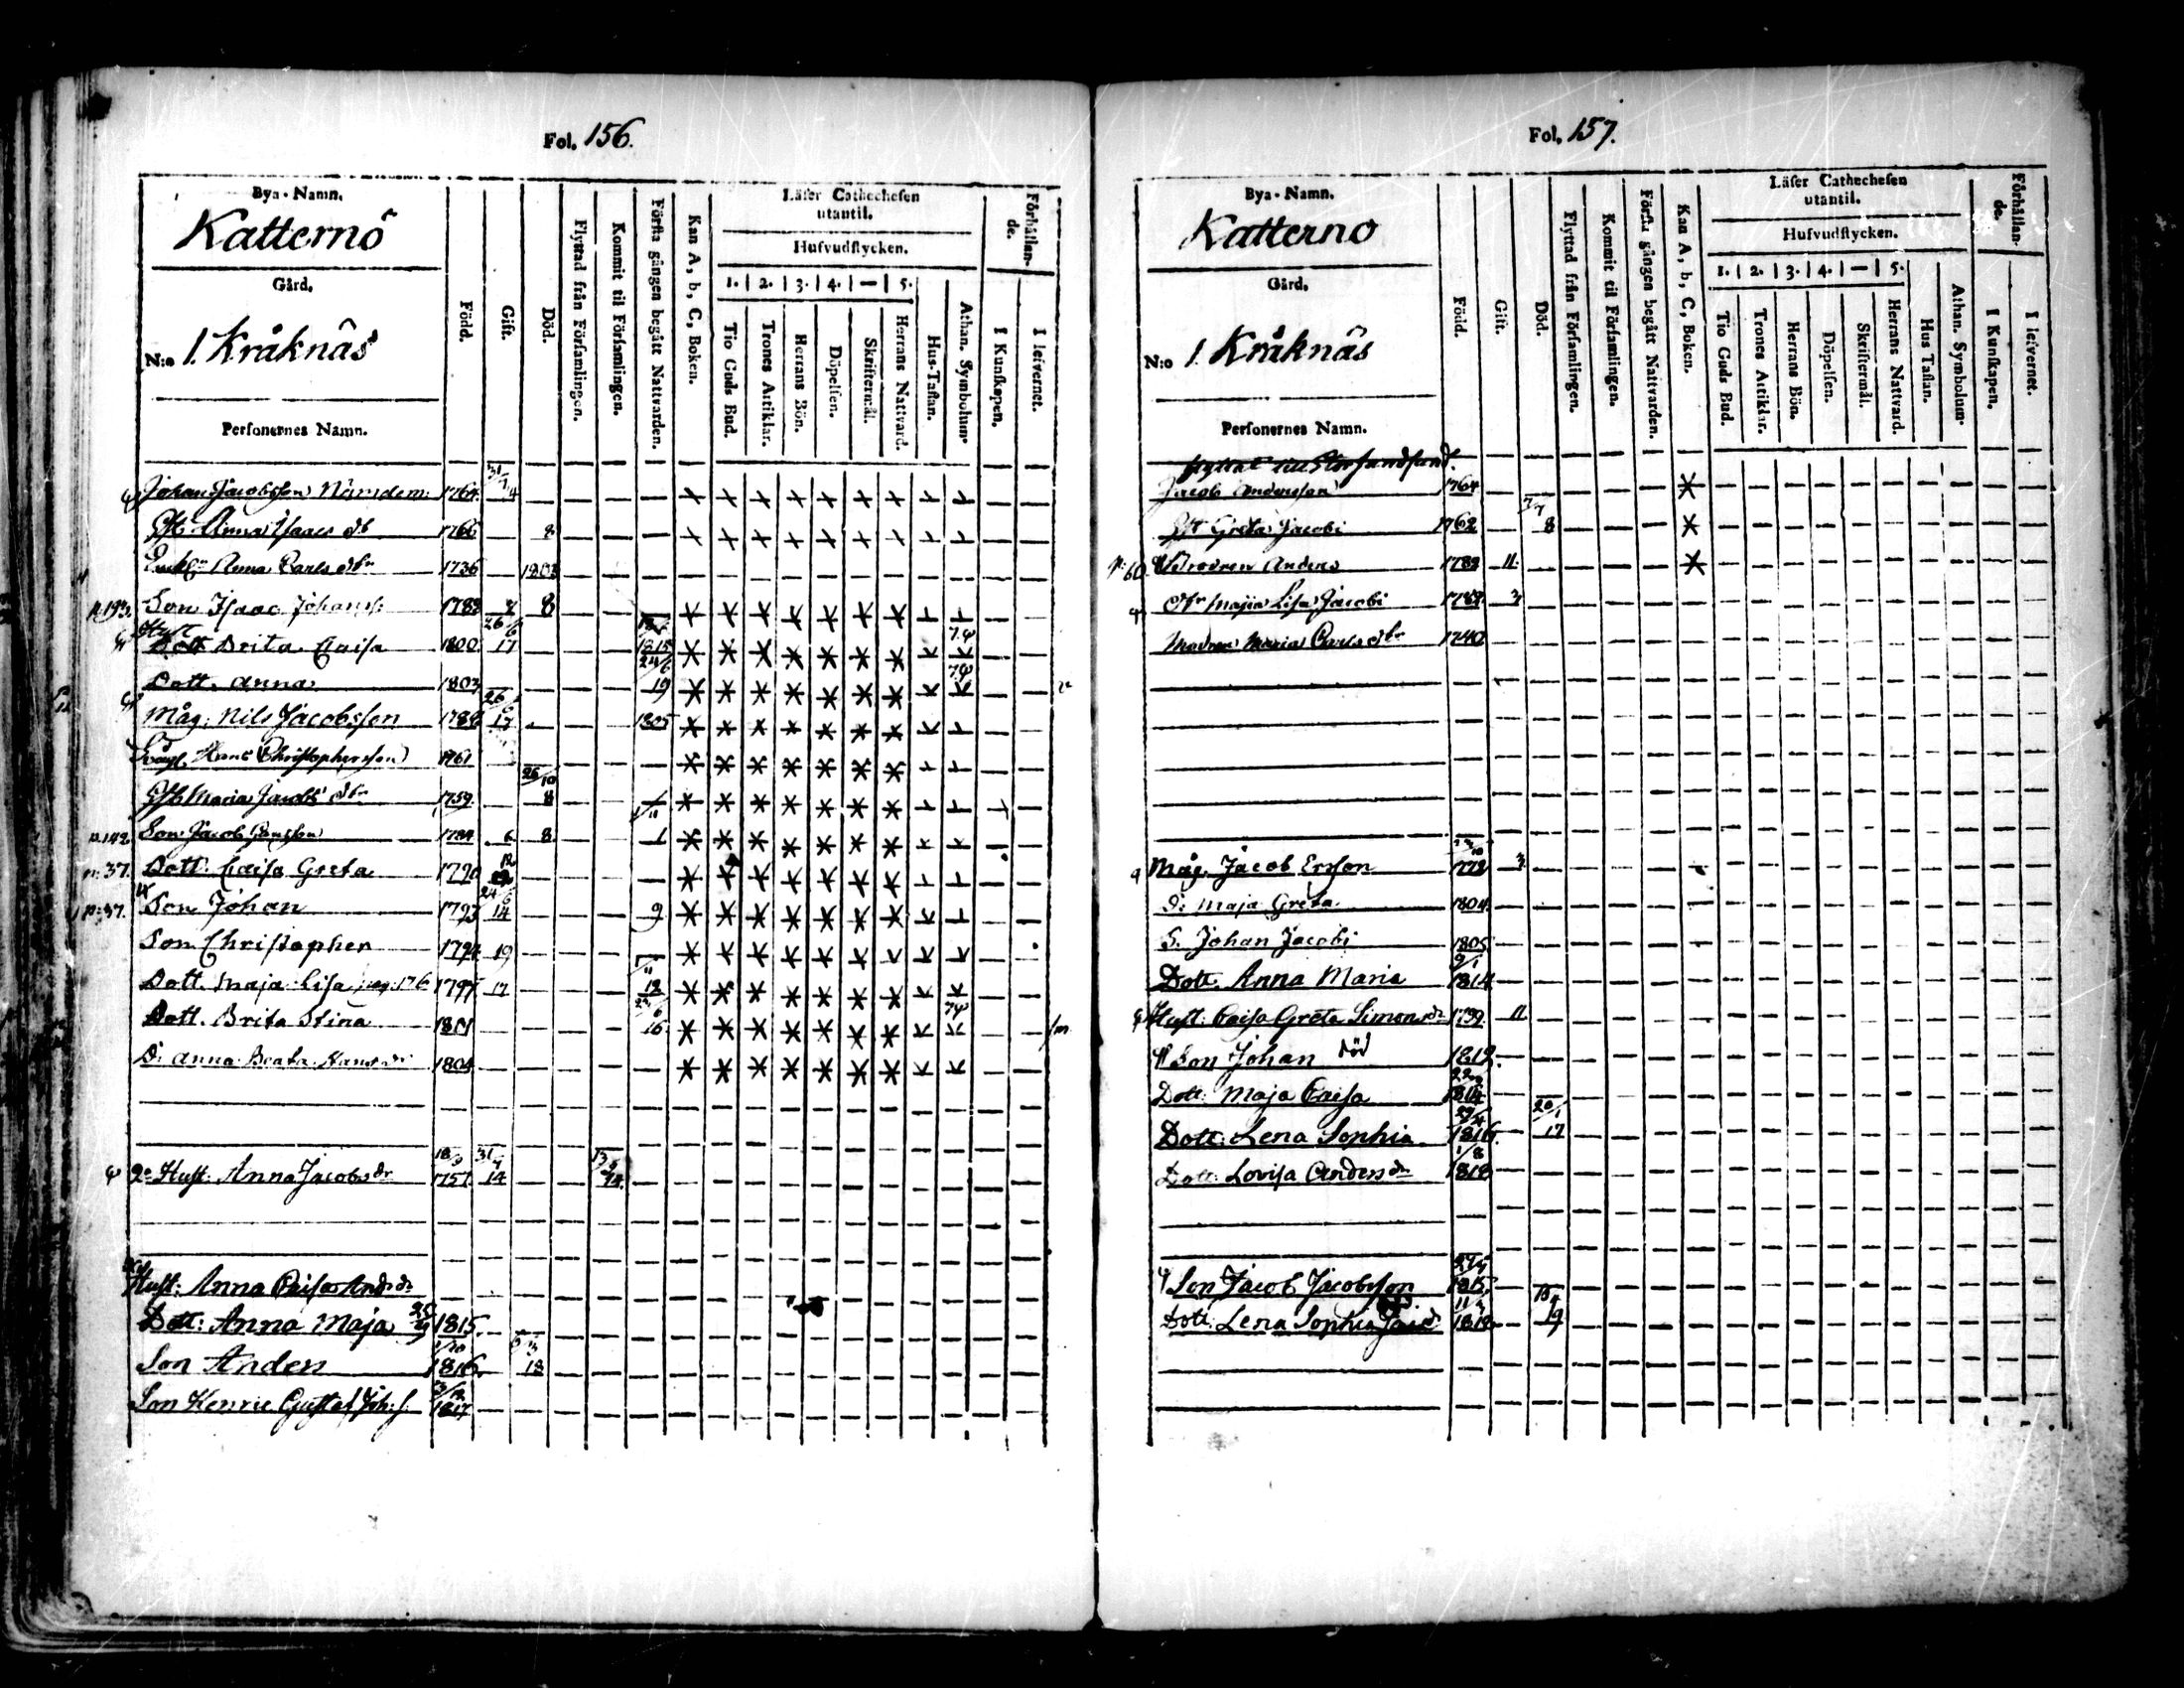 Fol. 156.
Bya-Namn.
Katternö
Gård.
N:o 1. Kråknäs
Personernes Namn.
Född.
Gift.
Död.
Flyttad från Församlingen.
Kommit til Församlingen.
Första gången begått Nattvarden.
Kan A, b, C, Boken.
Läser Cathechesen utantil.
Hufvudstycken.
1. 2. 3. 4. — 5.
Tio Guds Bud.
Trones Artiklar.
Herrans Bön.
Döpelsen.
Skriftermål.
Herrans Nattvard.
Hus-Taflan.
Athan. Symbolum.
Förhållande.
I Kunskapen.
I lefvernet.
Johan Jacobsson Nämdem. 1764 31/7 14
Hst. Anna Isaacs dr 1766 8
Enkl. Anna Carls dr 1736 1803
p. 193. Son Isaac Johans. 1788 8
Hust. Dott. Brita Caisa 1800 26/6 17 1815
Dott. Anna 1803 24/6 19
Måg. Nils Jacobsson 1788 26/6 17 1805
Hans Christophersson 1761
Hst Maria Jacobs dr 1759 26/10 8
p. 142 Son Jacob Hansson 1784 6 8 1
p: 37. Dott. Caisa Greta 1790 12
p: 37. Son Johan 1793 24/6 14 9
Son Christopher 1794 19
Dott. Maja Lisa pag: 176 1797 17 12
Dott. Brita Stina 1801 16
D: Anna Beata Hans dr 1804
2:a Hust: Anna Jacobs dr 18/9 1757 31/7 14
Hust: Anna Caisa Ands dr
Dott: Anna Maja 25/9 1815
Son Anders 1/10 1816. 5/3 18
Son Henric Gustaf Joh: s. 3/12 1817
Fol. 157.
Bya-Namn.
Katterno
Gård.
N:o 1. Kråknäs
Personernes Namn.
Född.
Gift.
Död.
Flyttad från Församlingen.
Kommit til Församlingen.
Första gången begått Nattvarden.
Kan A, b, C, Boken.
Läser Cathechesen utantil.
Hufvudstycken.
1. 2. 3. 4. — 5.
Tio Guds Bud.
Trones Artiklar.
Herrans Bön.
Döpelsen.
Skriftermål.
Herrans Nattvard.
Hus Taflan.
Athan. Symbolum.
Förhållande.
I Kunskapen.
I lefvernet.
flyttat till Storsundsund.
Jacob Andersson 1764
Hst Greta Jacobi 1762 7/7 8
p: 60. Anders 1789 11.
Dr Maja Lisa Jacobi 1784 3
Modren Maria Carls dr 1740
Måg. Jacob Ersson 1772 3
D: Maja Greta 1804.
S. Johan Jacobi 1805
Dott. Anna Maria 9/1 1814
Hust: Caisa Greta Simons dr 1789 11
Son Johan död 1812.
Dott: Maja Caisa 1814
Dott: Lena Sophia 29/4 1816. 20/1 17
Dott: Lovisa Anders dr 1/8 1818
Son Jacob Jacobsson 1815
Dott. Lena Sophia Jac dr 1818 19